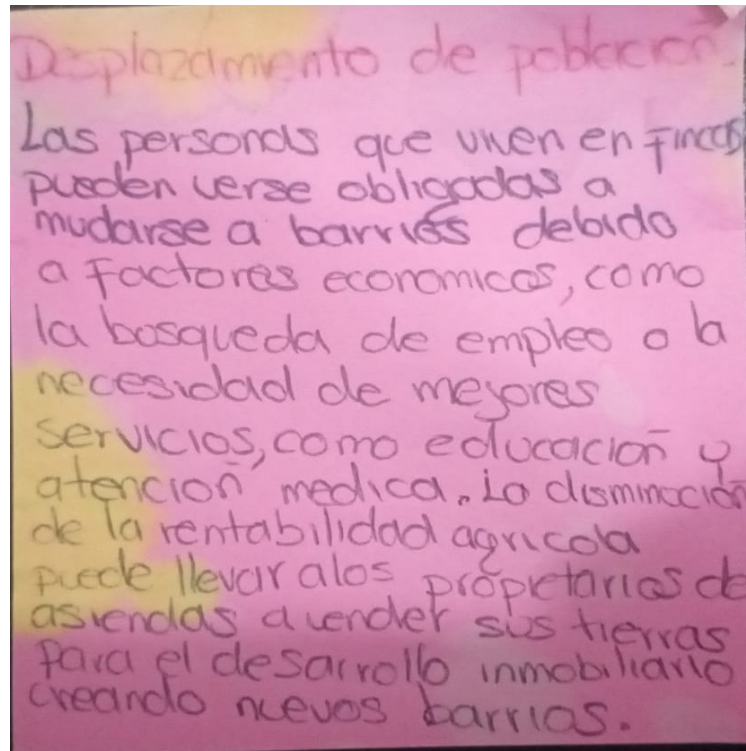 Desplazamiento de población.
Las personas que viven en Fincas
pueden verse obligadas a
mudarse a barrios debido
a Factores economicos, como
la bosqueda de empleo o la
necesidad de mejores
servicios, como educación y
atención medica. La disminución
de la rentabilidad agricola
puede llevar alos propietarios de
asiendas a vender sus tierras
para el desarrollo inmobiliario
creando nuevos barrios.